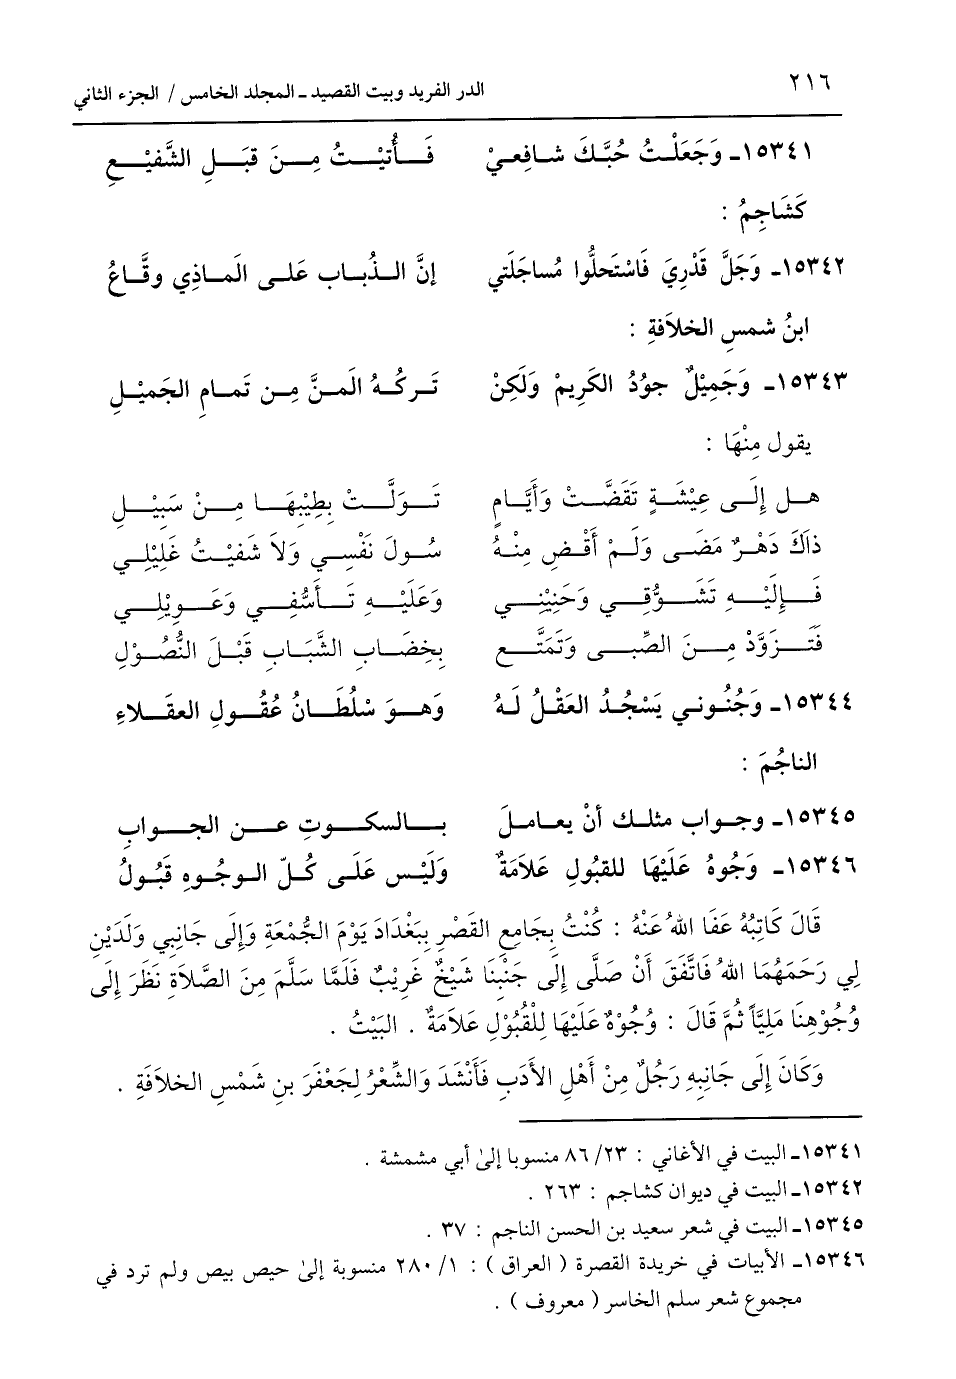 ٢١٦
الدر الفريد وبيت القصيد ـ المجلد الخامس / الجزء الثاني
١٥٣٤١ـ وَجَعَلْتُ حُبَّكَ شافِعيْ فَأُتيْتُ مِنَ قبَلِ الشَّفيْعِ
كَشَاجِمُ :
١٥٣٤٢ـ وَجَلَّ قَدْرِيَ فَاسْتَحلُّوا مُساجَلَتي إنَّ الذُّبابَ عَلى الَماذِي وقَّاعُ
ابنُ شمسِ الخلاَفةِ :
١٥٣٤٣ـ وَجَمِيْلٌ جوُدُ الكَرِيمْ وَلَكِنْ تَركُهُ الَمنَّ مِن تَمامِ الجَميْلِ
يقول مِنْهَا :
هل إِلَى عِيْشَةٍ تَقَضَّتْ وَأَيَّامٍ تَوَلَّتْ بِطِيْبِهَا مِنْ سَبِيْلِ
ذاكَ دَهْرٌ مَضَى وَلَمْ أَقْضِ مِنْهُ سُولَ نَفْسِي وَلاَ شَفيْتُ غَلِيْلِي
فَإِلَيْهِ تَشَوُّقِي وَحَنِيْنِي وَعَلَيْهِ تَأَسُّفِي وَعَوِيلِي
فَتَزوَّدْ مِنَ الصِّبى وَتَمَتَّع بِخِضَابِ الشَّبَابِ قَبْلَ النُّصُوْلِ
١٥٣٤٤ـ وَجُنُوني يَسْجُدُ العَقْلُ لَهُ وَهوَ سْلُطَانُ عُقُولِ العقَلاءِ
الناجُمَ :
١٥٣٤٥ـ وجواب مثلك أنْ يعاملَ بالسكوتِ عن الجوابِ
١٥٣٤٦ـ وَجُوهُ عَلَيْهَا للقبُولِ عَلاَمَةٌ وَلَيْس عَلَى كُلّ الوجُوهِ قَبُولُ
قَالَ كَاتِبُهُ عَفَا اللهُ عَنْهُ : كُنْتُ بِجَامِعِ القَصْرِ بِبَغْدَادَ يَوْمَ الجُمْعَةِ وَإِلَى جَانِبِي وَلَدَيْنِ
لِي رَحَمَهُمَا اللهُ فَاتَّفَقَ أَنْ صَلَّى إِلَى جَنْبِنَا شَيْخٌ غَرِيْبٌ فَلَمَّا سَلَّمَ مِنَ الصَّلاَةِ نَظَرَ إِلَى
وُجُوْهِنَا مَلِيَّاً ثُمَّ قَالَ : وُجُوْهٌ عَلَيْهَا لِلْقُبُوْلِ عَلاَمَةٌ . البَيْتُ .
وَكَانَ إِلَى جَانِبِهِ رَجُلٌ مِنْ أَهْلِ الأَدَبِ فَأَنْشَدَ وَالشِّعْرُ لِجَعْفَرَ بنِ شَمْسِ الخلاَفَةِ .
١٥٣٤١ـ البيت في الأغاني : ٢٣/ ٨٦ منسوبا إلىٰ أبي مشمشة .
١٥٣٤٢ـ البيت في ديوان كشاجم : ٢٦٣ .
١٥٣٤٥ـ البيت في شعر سعيد بن الحسن الناجم : ٣٧ .
١٥٣٤٦ـ الأبيات في خريدة القصرة ( العراق ) : ١/ ٢٨٠ منسوبة إلىٰ حيص بيص ولم ترد في
مجموع شعر سلم الخاسر ( معروف ) .